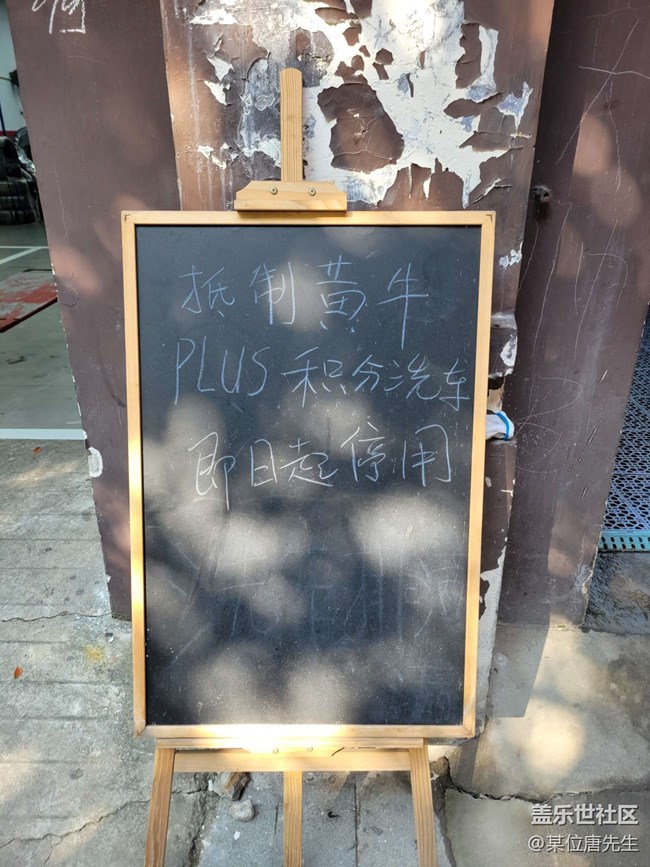 抵制黄牛
PLUS积分洗车
即日起停用
洗车排满
盖乐世社区
@某位唐先生